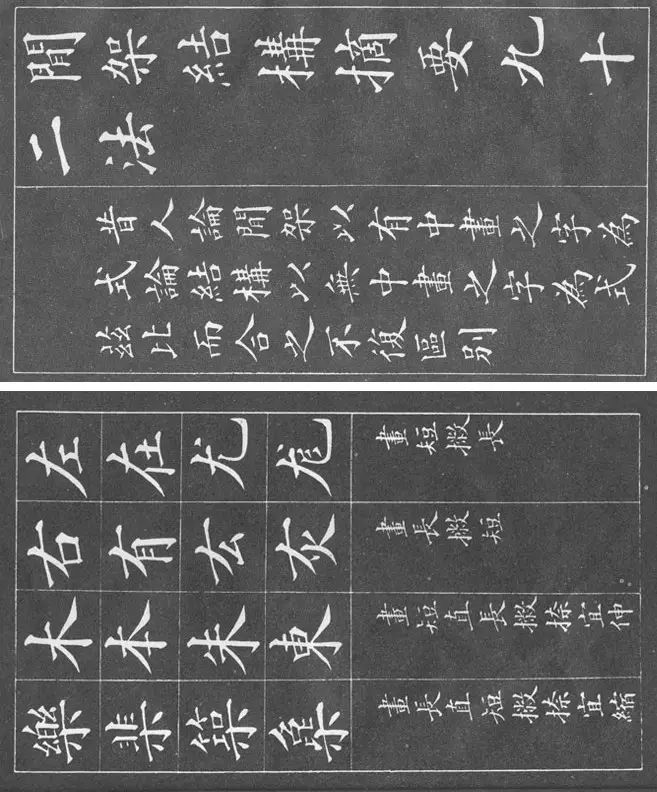 間架結構摘要九十
二法
昔人論間架以有中畫之字為
式論結構以無中畫之字為式
茲比而合之不復區別
左在尤尨 畫短撇長
右有厷灰 畫長撇短
木本朱東 畫短直長撇捺宜伸
樂棐 畫長直短撇捺宜縮